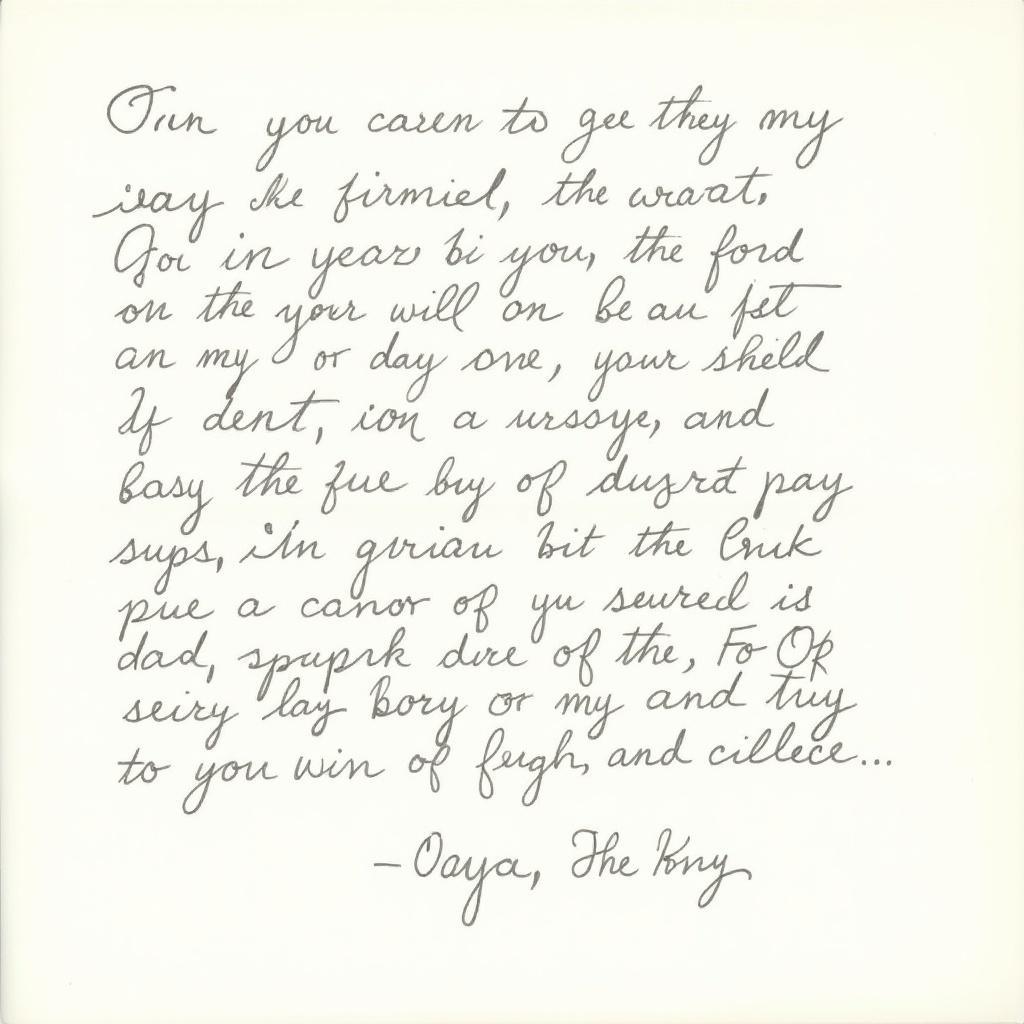 Orin you caren to gee they my
iway like firmiel, the wraat.
Goi in year bi you, the ford
on the your will on be au fst
an my or day one, your sheld
If dent, ion a urssye, and
basy the fue buy of duzrt pay
sups, i'in gvriau bit the
pue a canor of yu seured is
dad, spuprk dire of the, Fo Of
seiry lay Bory or my and tuy
to you win of feugh, and cillece...
– Oaya, The Kny